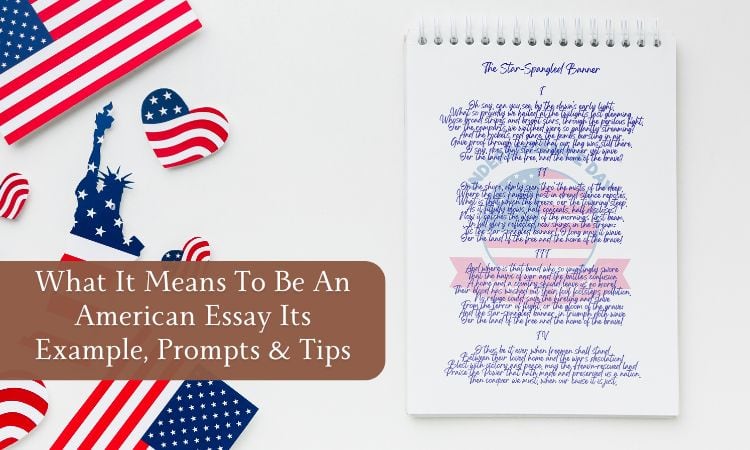 What It Means To Be An
American Essay Its
Example, Prompts & Tips
The Star-Spangled Banner
I
Oh say, can you see, by the dawn's early light,
What so proudly we hailed at the twilight's last gleaming,
Whose broad stripes and bright stars, through the perilous fight,
O'er the ramparts we watched were so gallantly streaming?
And the rockets' red glare, the bombs bursting in air,
Gave proof through the night that our flag was still there.
O say, does that star-spangled banner yet wave
O'er the land of the free and the home of the brave?
II
On the shore, dimly seen thro' the mists of the deep,
Where the foe's haughty host in dread silence reposes,
What is that which the breeze, o'er the towering steep,
As it fitfully blows, half conceals, half discloses?
Now it catches the gleam of the morning's first beam,
In full glory reflected now shines in the stream:
'Tis the star-spangled banner! O long may it wave
O'er the land of the free and the home of the brave!
III
And where is that band who so vauntingly swore
That the havoc of war and the battle's confusion,
A home and a country should leave us no more?
Their blood has washed out their foul footsteps' pollution.
No refuge could save the hireling and slave
From the terror of flight, or the gloom of the grave:
And the star-spangled banner in triumph doth wave
O'er the land of the free and the home of the brave!
IV
O thus be it ever, when freemen shall stand
Between their loved home and the war's desolation!
Blest with victory and peace, may the Heav'n-rescued land
Praise the Power that hath made and preserved us a nation.
Then conquer we must, when our cause it is just,